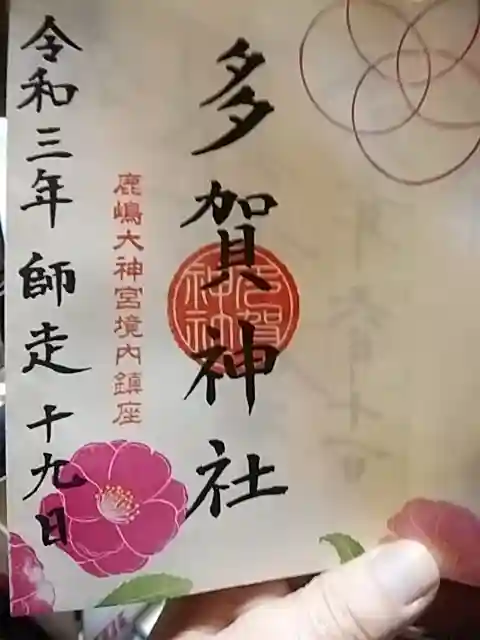 多賀神社
鹿嶋大神宮境内鎮座
令和三年 師走 十九日